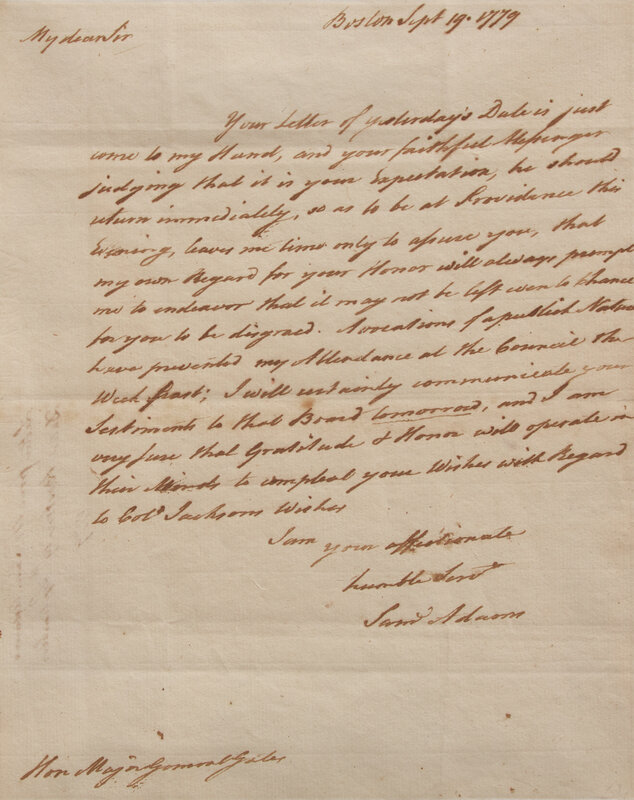 Boston Sept 19. 1779
My dear Sir
Your Letter of yesterday's Date is just
come to my Hand, and your faithful Messenger
judging that it is your Expectation, he should
return immediately, so as to be at Providence this
Evening, leaves me time only to assure you, that
my own Regard for your Honor will always prompt
me to endeavor that it may not be left even to chance
for you to be disgracd. Avocations of a publick Nature
have prevented my Attendance at the Council the
Week past; I will certainly communicate your
Sentiments to that Board tomorrow, and I am
very sure that Gratitude & Honor will operate in
their Minds to compleat your Wishes with Regard
to Colo. Jacksons Wishes
I am your affectionate
humble Servt
Saml Adams
Hon Major General Gates